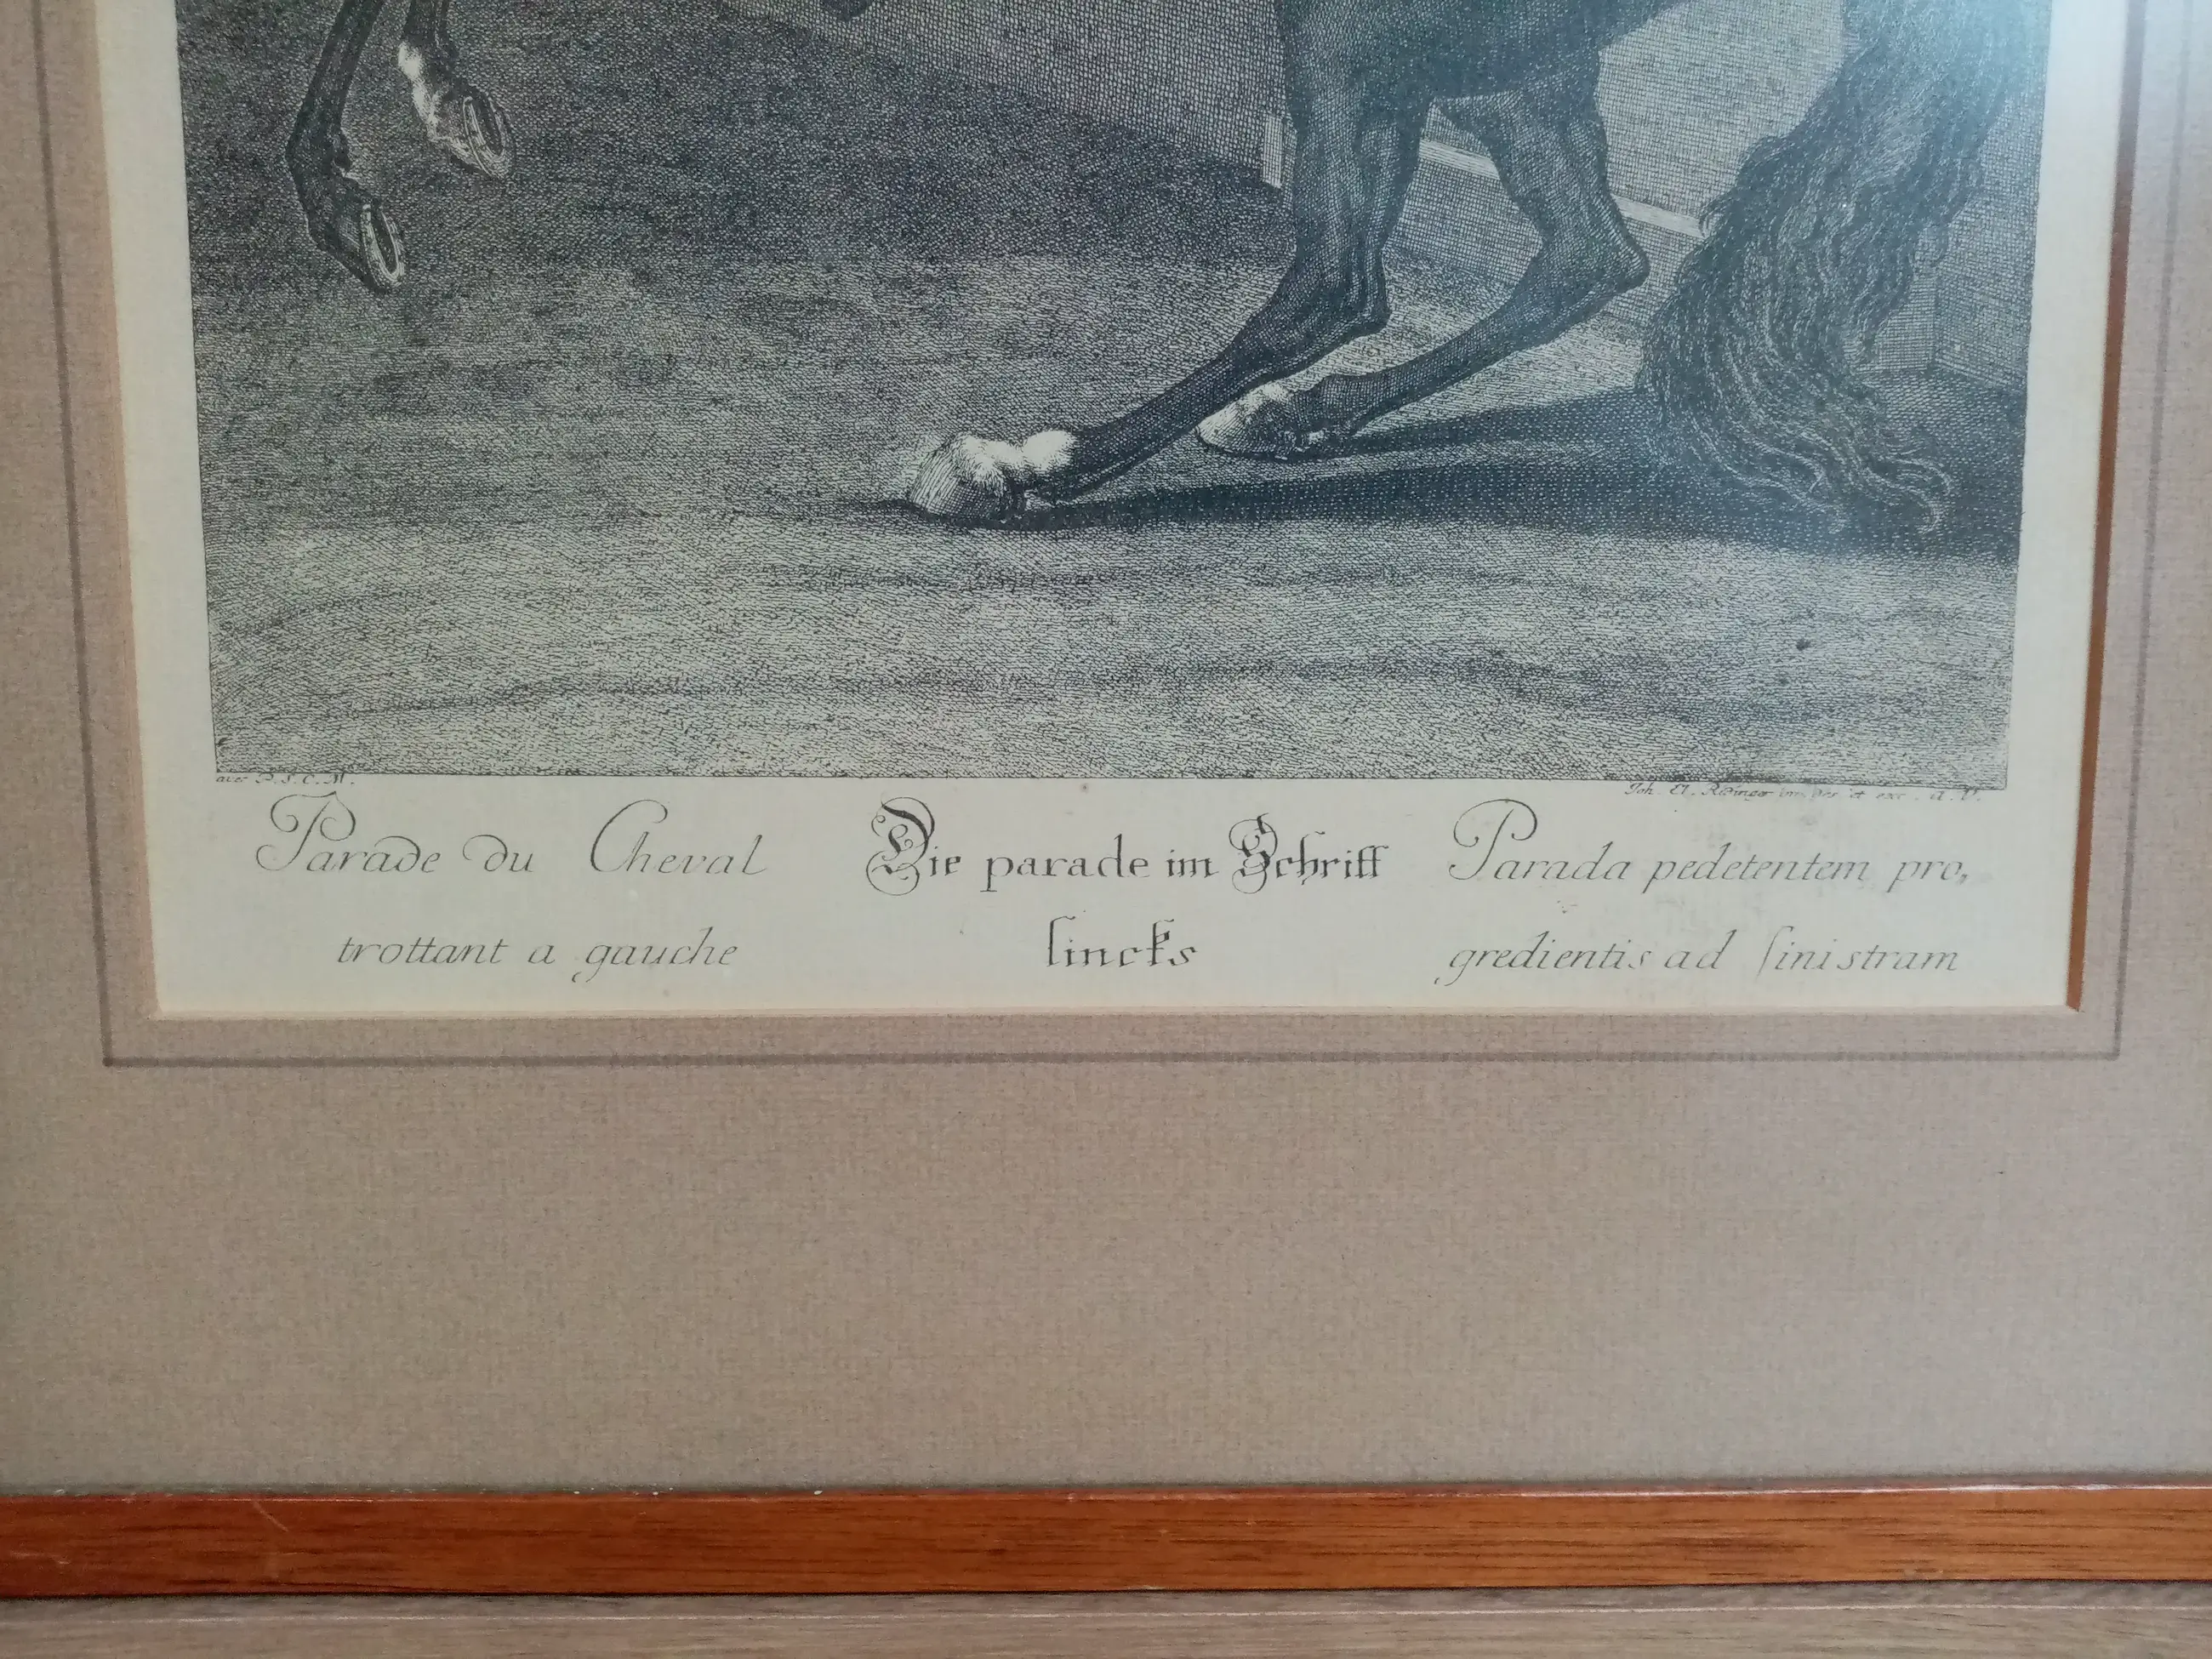 avec P. S. C. M.
Joh. El. Ridinger inv. del. et exc. A. V.
Parade du Cheval
trottant a gauche
Die parade im Schritt
lincks
Parada pedetentem pro,
gredientis ad sinistram